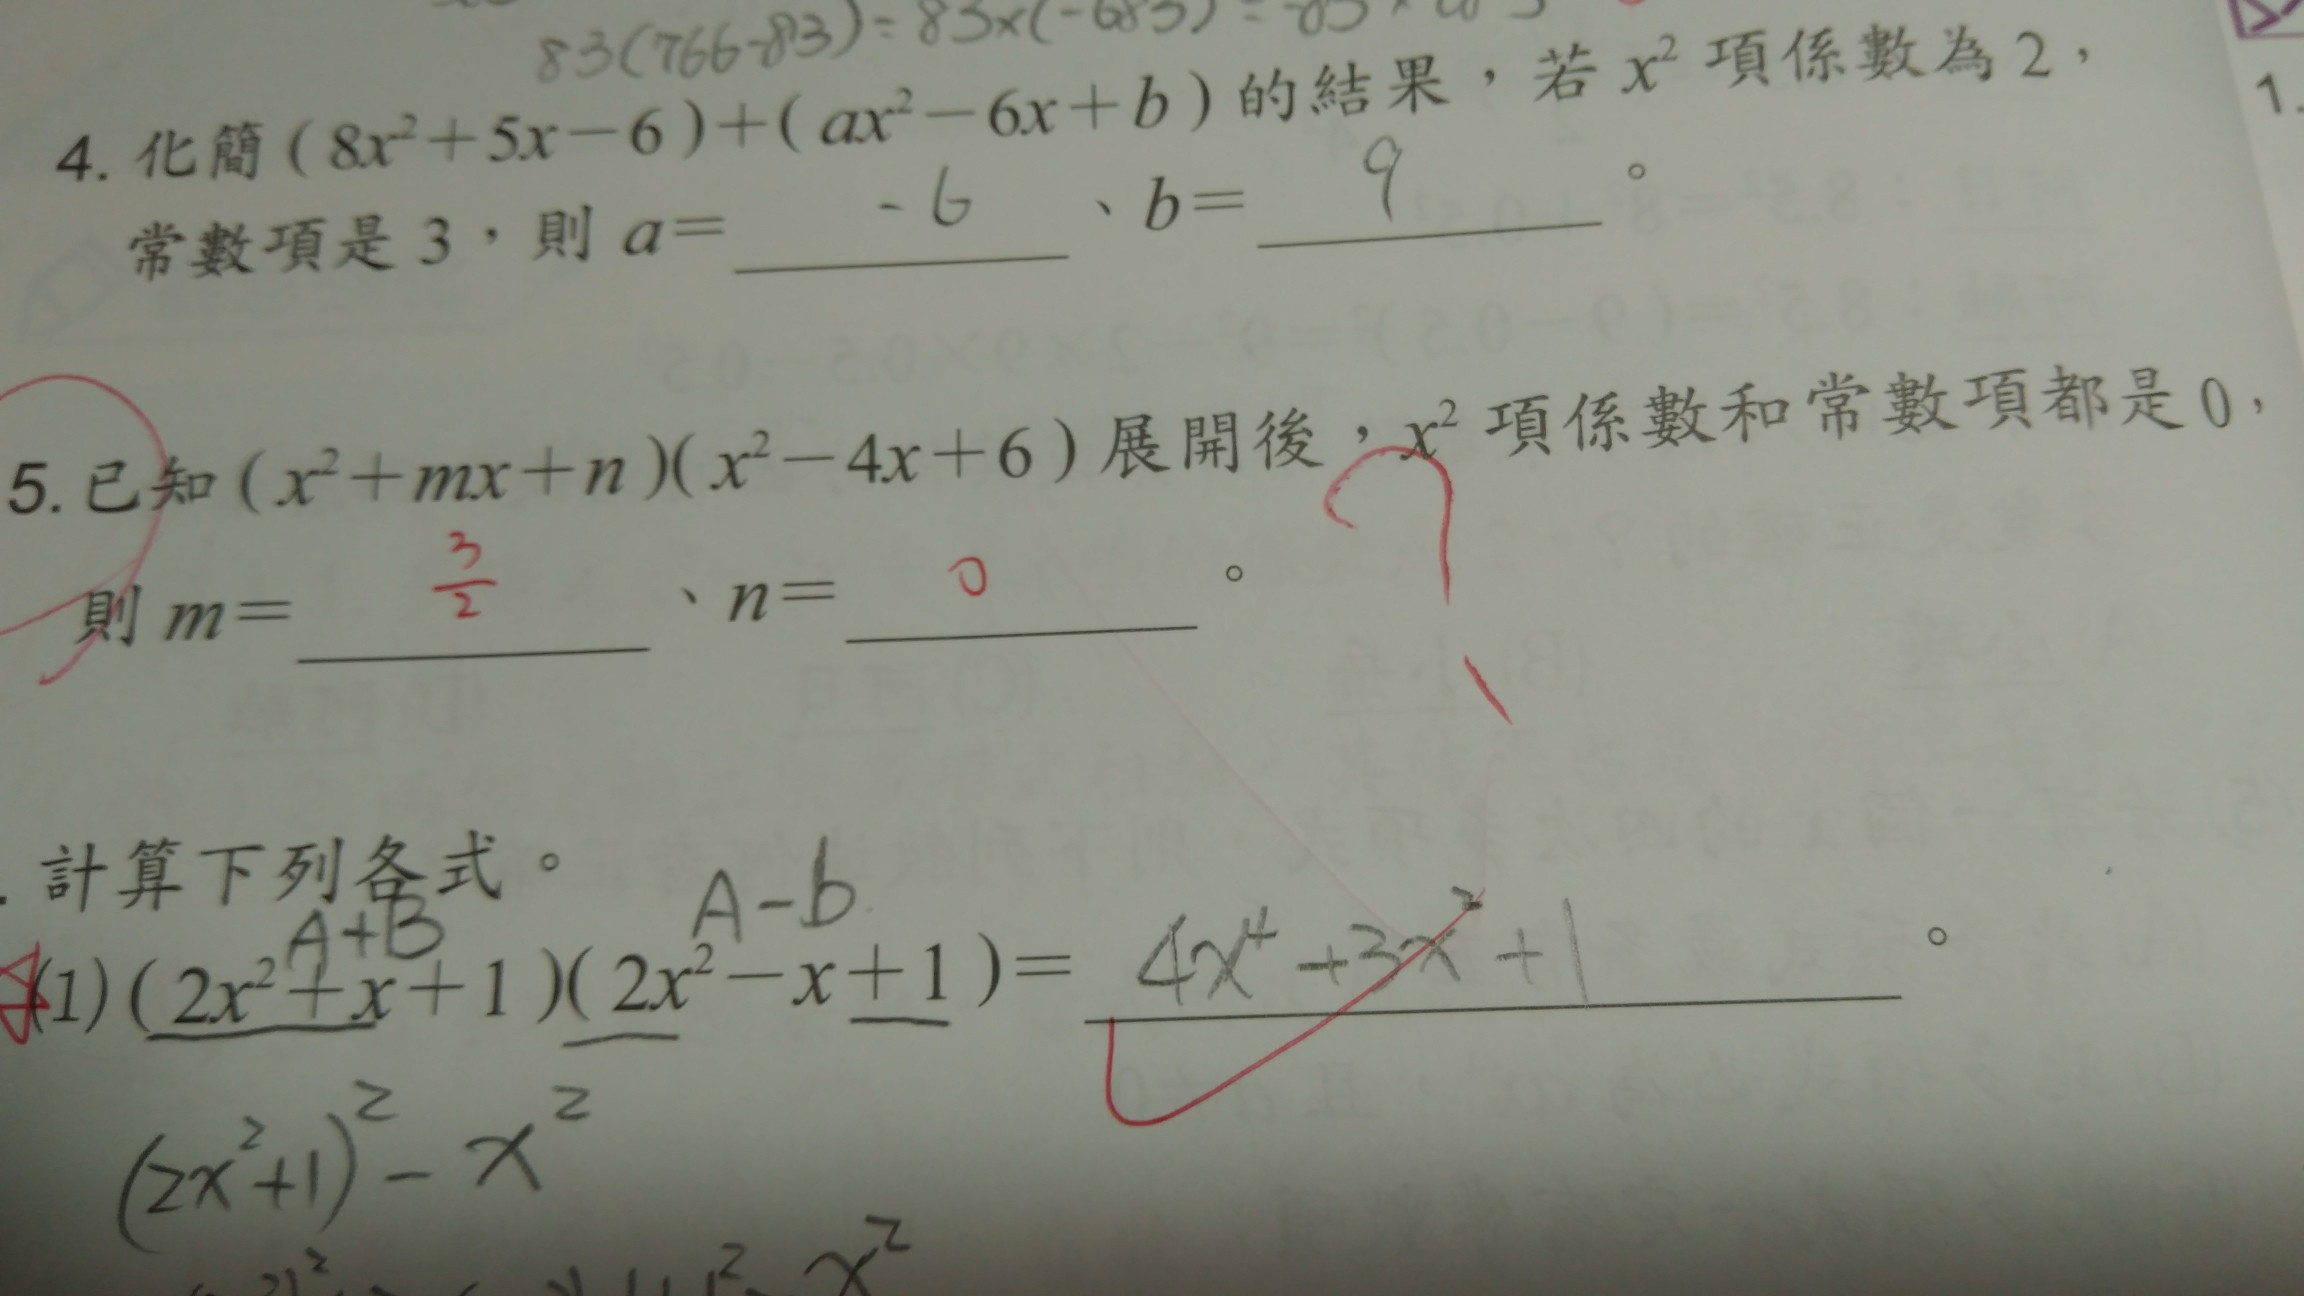 83(766-83)=83×(-683)=-83×
4. 化簡(8x²+5x-6)+(ax²-6x+b)的結果,若x²項係數為2,
1.
常數項是3,則a= -6 、b= 9 。
5. 已知(x²+mx+n)(x²-4x+6)展開後,x²項係數和常數項都是0,
則m= 3/2 、n= 0 。
?
. 計算下列各式。
A+B A-b
(1)(2x²+x+1)(2x²-x+1)= 4x⁴+3x²+1 。
(2x²+1)²-x²
x²